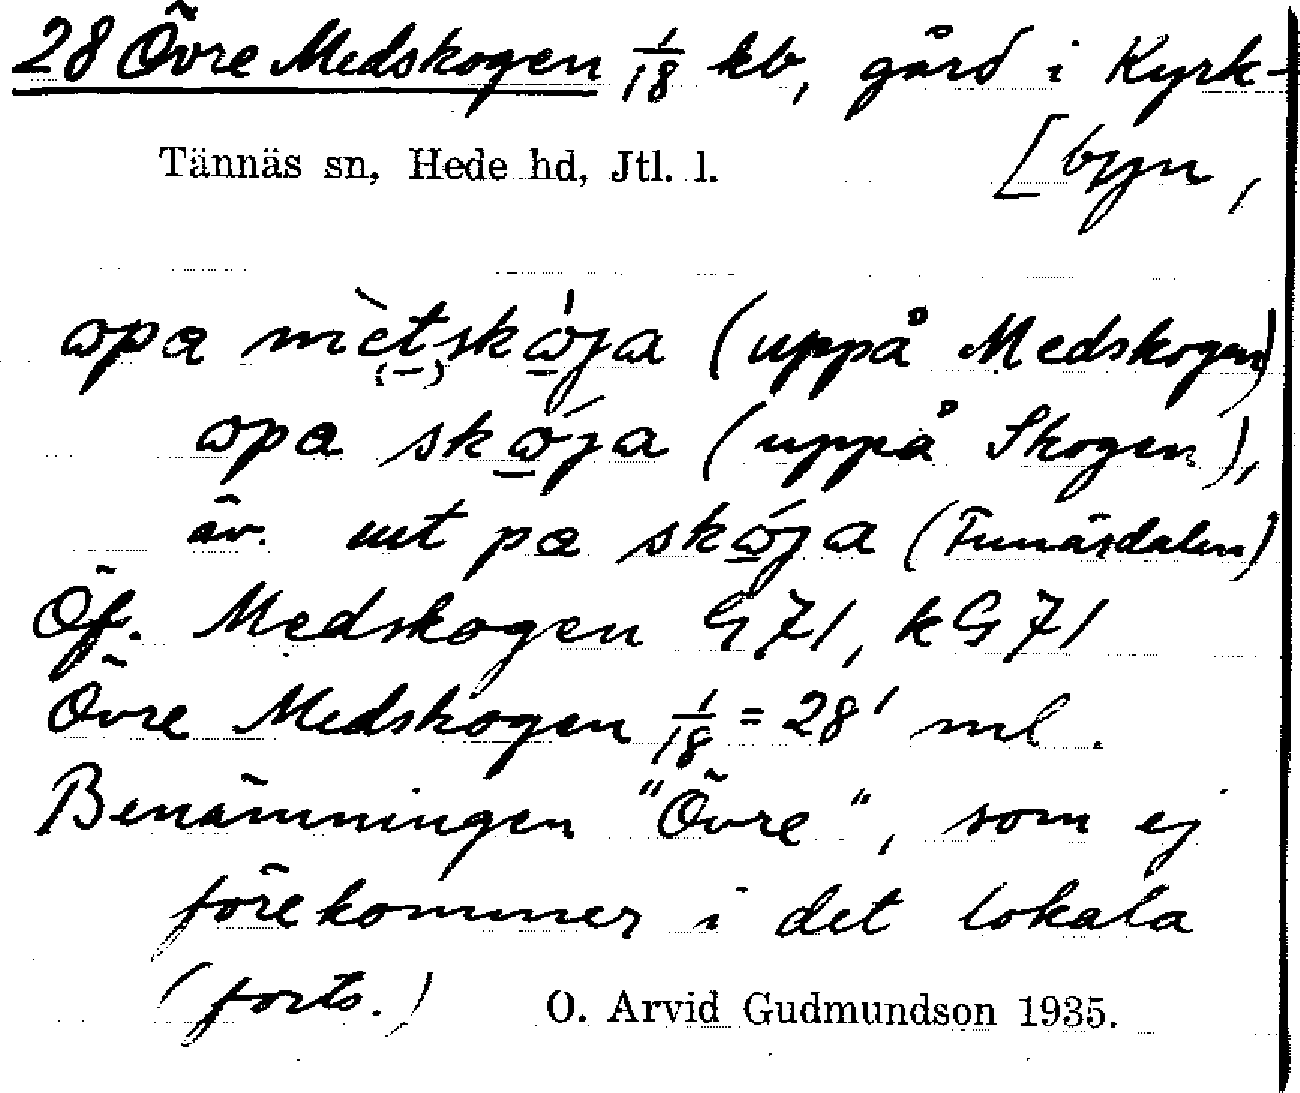 28 Övre Medskogen 1/18 kb, gård i Kyrk-
[byn,
Tännäs sn, Hede hd, Jtl. l.
ɷpa mètskɷ̀ja (uppå Medskogen)
ɷpa skɷ́ja (uppå Skogen),
äv. ut pa skɷ́ja (Funäsdalen)
Öf. Medskogen G71, kG71
Övre Medskogen 1/18 = 28' ml.
Benämningen "Övre", som ej
förekommer i det lokala
(forts.) O. Arvid Gudmundson 1935.